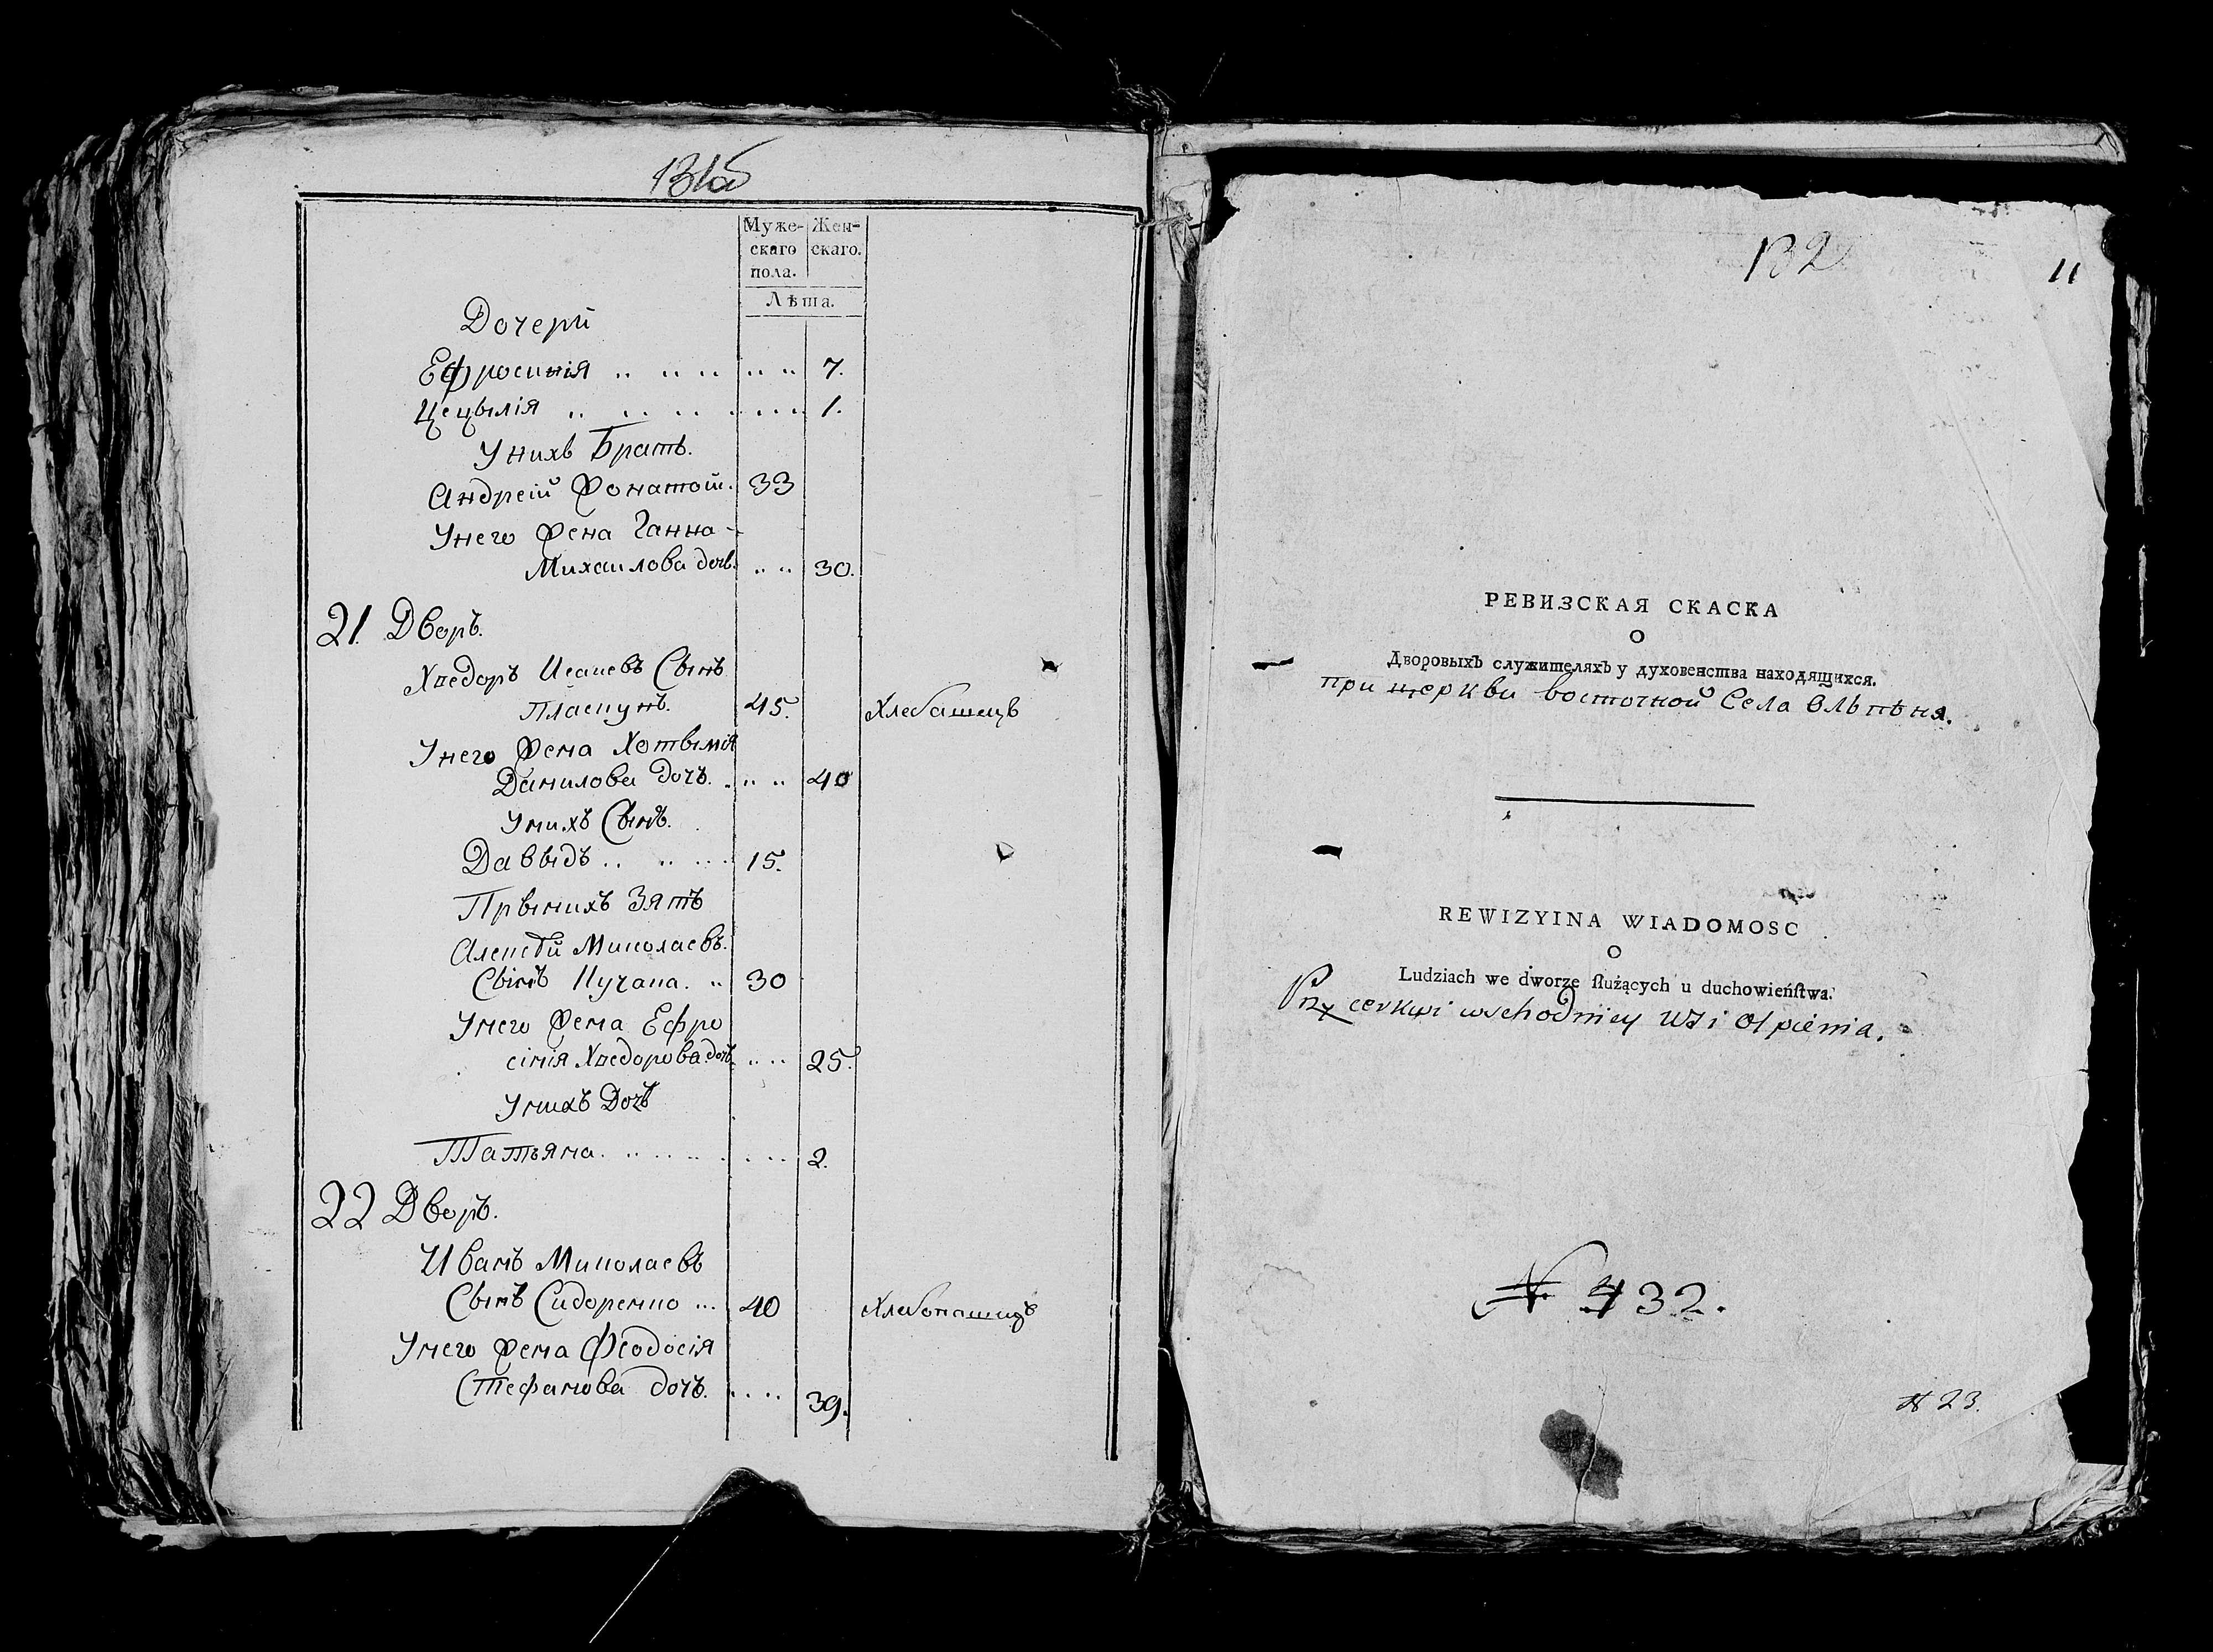 131об
Муже- Жен-
скаго скаго.
пола.
Лѣта.
Дочери
Ефросинія .. .. .. .. .. 7.
Цецылія .. .. .. .. .. 1.
Унихъ Братъ.
Андрей 33
Унего жена Ганна
Михаилова дочь. .. .. 30.
21. Дворъ.
Хведоръ Исаиевъ Сынъ
45. Хлебопашецъ
Унего жена Хотымія
Данилова дочъ. .. .. 40
Унихъ Сынъ.
Давыдъ .. .. .. 15.
Прынихъ Зятъ
Алексѣй Миколаевъ.
Сынъ .. 30
Унего жена Ефро
сінія Хведорова дочъ .. .. 25.
Унихъ Дочъ
Татъяна. .. .. .. .. 2.
22 Дворъ.
Иванъ Миколаевъ
Сынъ Сидоренко ... 40 Хлебопашецъ
Унего жена Феодосія
Стефанова дочъ. .. .. 39.
132
11
РЕВИЗСКАЯ СКАСКА
О
Дворовыхъ служителяхъ у духовенства находящихся.
при церкви восточной Села Олпѣня.
REWIZYINA WIADOMOSC
O
Ludziach we dworze ſłużących u duchowieńſtwa.
Przy cerkwi wschodniey WSi Olpienia.
N 432.
N 23.